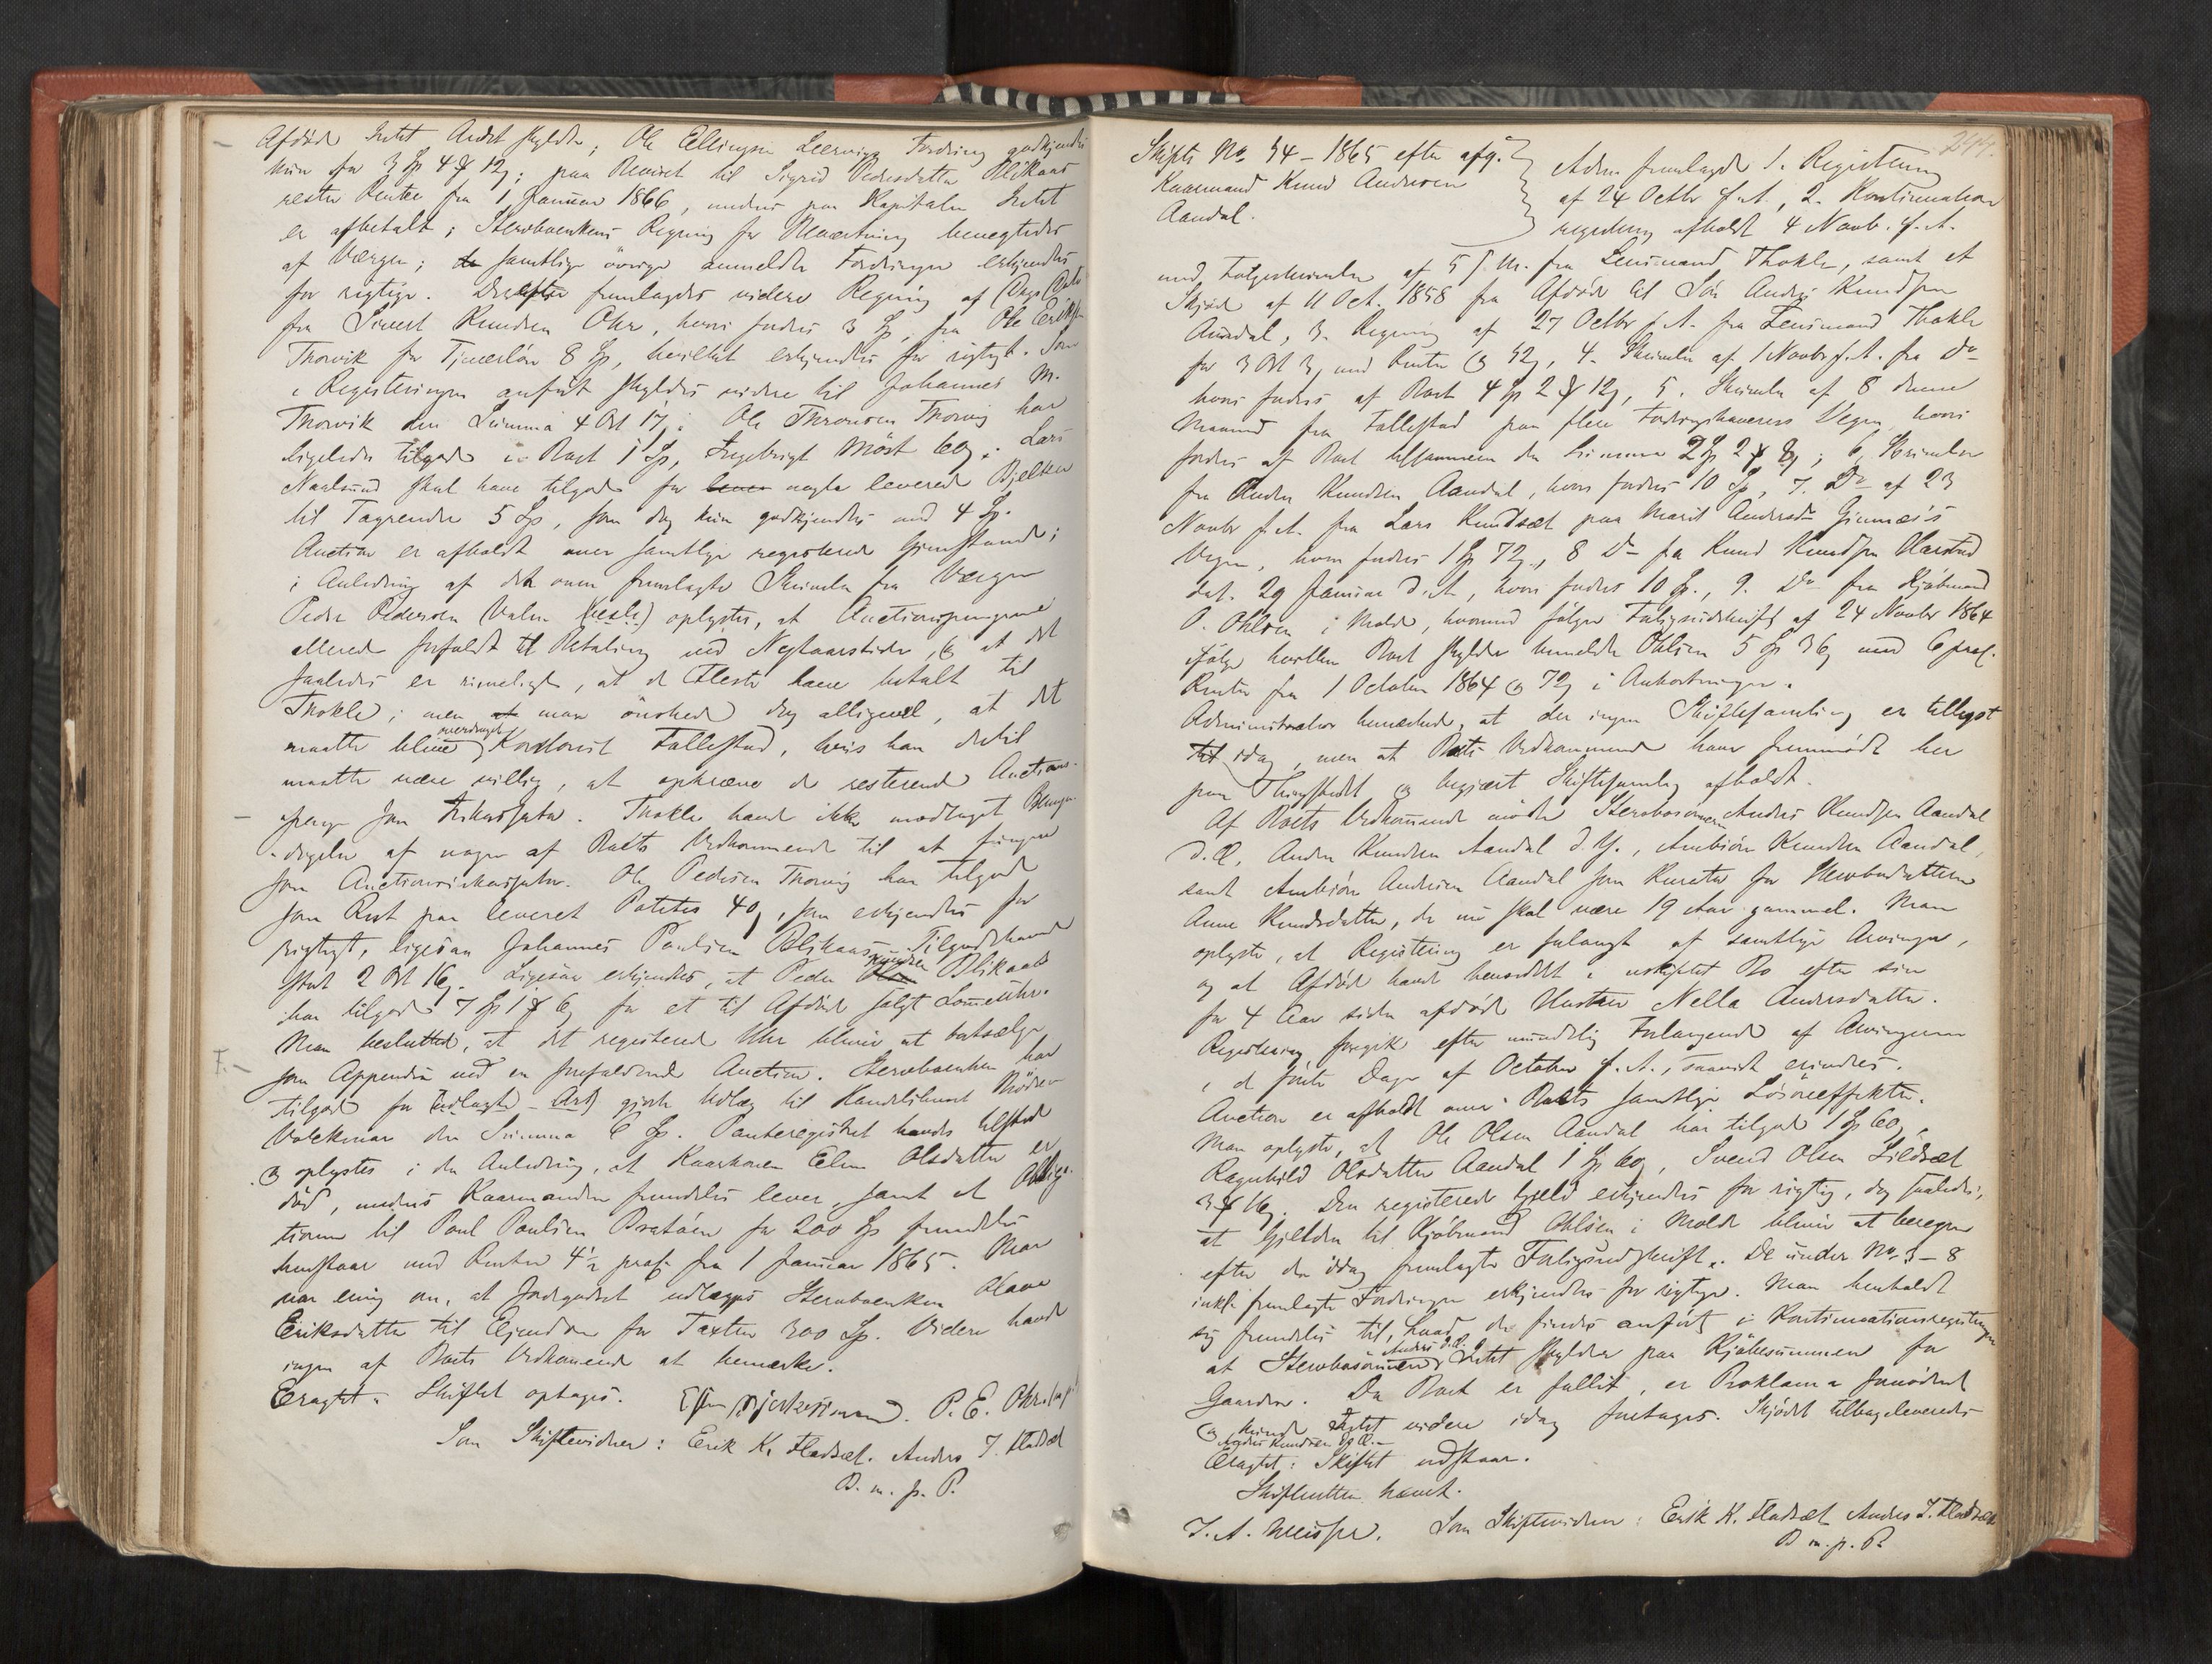 Afdøde Intet Andet skyldte; Ole Ellingsen Leervigs Fordring godkjendtes
kun for 3 Sp 4 ß 12; paa Beviset til Sigrid Pedersdatter Blikaas
rester Rente fra 1 Januar 1866, medens paa Kapitalen Intet
er afbetalt; Stervboenkens Regning for Beværtning benegtedes
af Værgen; de samtlige øvrige anmeldte Fordringer erkjendtes
for rigtige. Derefter fremlagdes videre Regning af Dags Dato
fra Sivert Knudsen Ohr, hvori fordres 3 Sp, fra Ole Eriksen
Thorvik for Tjenerløn 8 Sp, hvilket erkjendtes for rigtigt. Som
i Registeringen anført skyldes videre til Johannes M.
Thorvik den Summa 4 Ort 17; Ole Thronsen Thorvig har
ligeledes tilgode i Boet 1 Sp, Ingebrigt Møst 60; Lars
Naalsund skal have tilgode for leven nogle leverede Bjelker
til Tagrender 5 Sp, som dog kun godkjendtes med 4 Sp.
Auction er afholdt over samtlige registerede Gjenstande;
i Anledning af det oven fremlagte Skrivelse fra Værgen
Peder Pedersen Valen (Vesle) oplystes, at Auctionspengene
allerede forfaldt til Betaling ved Nytaarstider, og at det
saaledes er rimeligt, at de Fleste have betalt til
Thokle; men at man ønskede dog alligevel, at det
maatte blive overdraget Kordonist Tallestad, hvis han dertil
maatte være villig, at opkræve de resterende Auctions-
penge som Inkassator. Thokle havde ikke modtaget Bemyn-
digelse af nogen af Boets Vedkommende til at fungere
som Auctionsinkassator. Ole Pedersen Thorvig har tilgode
som Rest paa leveret Potetes 40, som erkjendtes for
rigtigt, ligesaa Johannes Paulsen Blikaas Tilgodehavende
stort 2 Ort 16. Ligesaa erkjendtes, at Peder Knudsen Blikaas
har tilgode 7 Sp 1 ß 6 for et til Afdøde solgt Lommeuhr.
Man besluttede, at det registerede Uhr bliver at bortsælge
som Appendix ved en forefaldende Auction. Stervboenken har
F.
tilgode for (udlagte - Art) gjorte Udlæg til Handelshuset Brødrene
Volckmar den Summa 6 Sp. Panteregistret havdes tilstede
og oplystes i den Anledning, at Kaarkonen Elen Olsdatter er
død, medens Kaarmanden fremdeles lever, samt at Obliga-
tionen til Poul Poulsen Bratøen for 200 Sp fremdeles
henstaar med Renter 4½ pros. fra 1 Januar 1865. Man
var enig om, at Jordegodset udlægges Stervboenken Olave
Eriksdatter til Ejendom for Taxten 300 Sp. Videre havde
ingen af Boets Vedkommende at bemærke.
Eragtet: Skiftet optages.
P. E. Ohr. (m.p.P.)
Som Skiftevidner: Erik K. Hadsæt. Anders J. Hadsæt
B. m. p. P.
244.
Skifte No. 54 - 1865 efter afg.
Kaarmand Knud Andersen
Aandal.
Adm. fremlagde 1. Registering
af 24 Octbr f. A., 2. Kontinuations
registering afholdt 4 Novb. f. A.
med Følgeskrivelse af 5 s. M. fra Lensmand Thokle, samt et
Skjøde af 11 Oct. 1858 fra Afdøde til Søn Anders Knudsen
Aandal, 3. Regning af 27 Octbr f. A. fra Lensmand Thokle
for 3 Ort 3, med Renter og 52, 4. Skrivelse af 1 Novbr f. A. fra Do
hvori fordres af Boet 4 Sp 2 ß 12, 5. Skrivelse af 8 denne
Maaned fra Tallestad paa flere Fordringshaveres Vegne, hvori
fordres af Boet tilsammen den Summa 2 Sp 2 ß 8; 6, Skrivelse
fra Anders Knudsen Aandal, hvori fordres 10 Sp, 7. Do af 23
Novbr f. A. fra Lars Knudsæt paa Marit Andersdr Gimnæs's
Vegne, hvori fordres 1 Sp 72, 8 Do fra Knud Knudsen Harstad
dat. 29 Januar d. A., hvori fordres 10 Sp., 9. Do fra Kjøbmand
O. Ohlsen i Molde, hvormed følger Forligsudskrift af 24 Novbr 1864
ifølge hvilken Boet skylder bemeldte Ohlsen 5 Sp 36 med 6 pros.
Renter fra 1 October 1864 og 72 i Omkostninger.
Administrator bemærkede, at der ingen Skiftesamling er tillyst
til idag, men at Boets Vedkommende have fremmødt her
paa Thingstedet og begjært Skiftesamling afholdt.
Af Boets Vedkommende mødte Stervbosønnen Anders Knudsen Aandal
d. Æ., Anders Knudsen Aandal d. Y., Ambiørn Knudsen Aandal,
samt Ambiørn Andersen Aandal som Kurator for Stervbodatteren
Anne Knudsdatter, der nu skal være 19 Aar gammel. Man
oplyste, at Registering er forlangt af samtlige Arvinger,
og at Afdøde havde hensiddet i uskiftet Bo efter sin
for 4 Aar siden afdøde Hustru Nella Andersdatter.
Registering foregik efter mundtlig Forlangende af Arvingerne
i de første Dage af October f. A., saavidt erindres.
Auction er afholdt over Boets samtlige Løsøreeffekter.
Man oplyste, at Ole Olsen Aandal har tilgode 1 Sp 60,
Ragnhild Olsdatter Aandal 1 Sp 60, Svend Olsen Sildsæt
3 ß 16. Den registerede Gjeld erkjendtes for rigtig, dog saaledes,
at Gjelden til Kjøbmand Ohlsen i Molde bliver at beregne
efter den idag fremlagte Forligsudskrift. De under No. 3 - 8
inkl. fremlagte Fordringer erkjendtes for rigtige. Man henholdt
sig fremdeles til, hvad der findes anført i Kontinuationsregisteringen
at Stervbosønnen Anders d. Æ. Intet skylder paa Kjøbesummen for
Gaarden. Da Boet er fallit, er Proklama fornødent
og kunde Intet videre idag foretages. Skjødet tilbageleveredes
Anders Knudsen d. Æ.
Eragtet: Skiftet udstaar.
Skifteretten hævet.
J. A. Meisser. Som Skiftevidner: Erik K. Hadsæt Anders J. Hadsæt
B m. p. P.